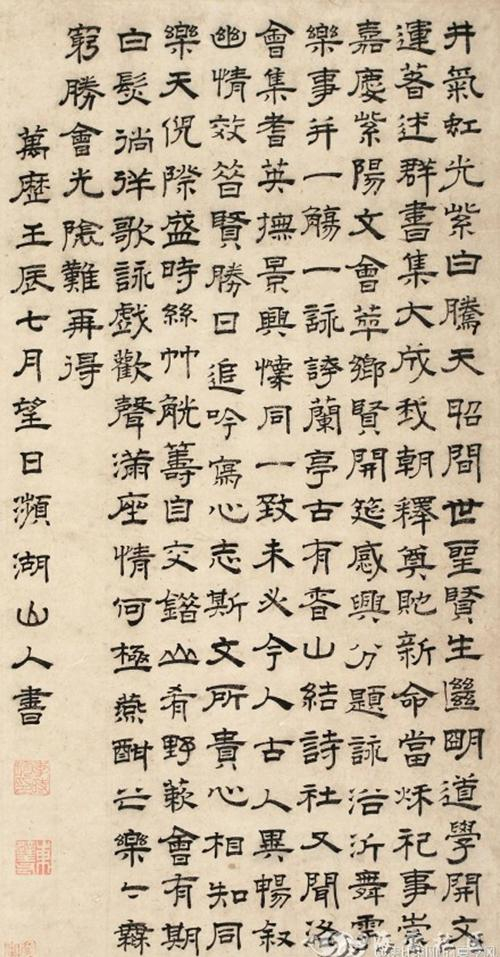 井氣虹光紫白騰天昭間世聖賢生繼朙道學開文
運著述群書集大成我朝釋奠貤新命當秌祀事崇
嘉慶紫陽文會萃鄉賢開筵感興分題詠浴沂舞雩
樂事并一觴一詠誇蘭亭古有香山結詩社又聞洛
會集耆英撫景興懷同一致未必今人古人異暢敘
幽情效昔賢勝日追吟寫心志斯文所貴心相知同
樂天倪際盛時絲竹觥籌自交錯山肴野蔌會有期
白髮徜徉歌詠戲歡聲滿座情何極燕酣之樂々無
窮勝會光陰難再得
萬歷壬辰七月望日瀕湖山人書